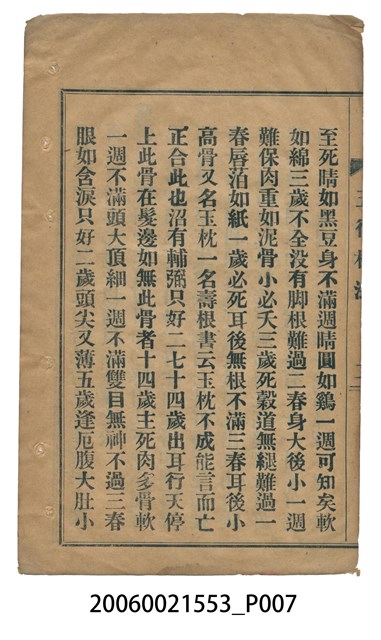 至死睛如黑豆身不滿週睛圓如鷄一週可知矣軟
如綿三歲不全没有脚根難過二春身大後小一週
難保肉重如泥骨小必夭三歲死穀道無縫難過一
春唇萡如紙一歲必死耳後無根不滿三春耳後小
高骨又名玉枕一名壽根書云玉枕不成能言而亡
正合此也沼有輔弼只好二七十四歲出耳行天停
上此骨在髮邊如無此骨者十四歲主死肉多骨軟
一週不滿頭大頂細一週不滿雙目無神不過三春
眼如含淚只好二歲頭尖又薄五歲逢厄腹大肚小
20060021553_P007